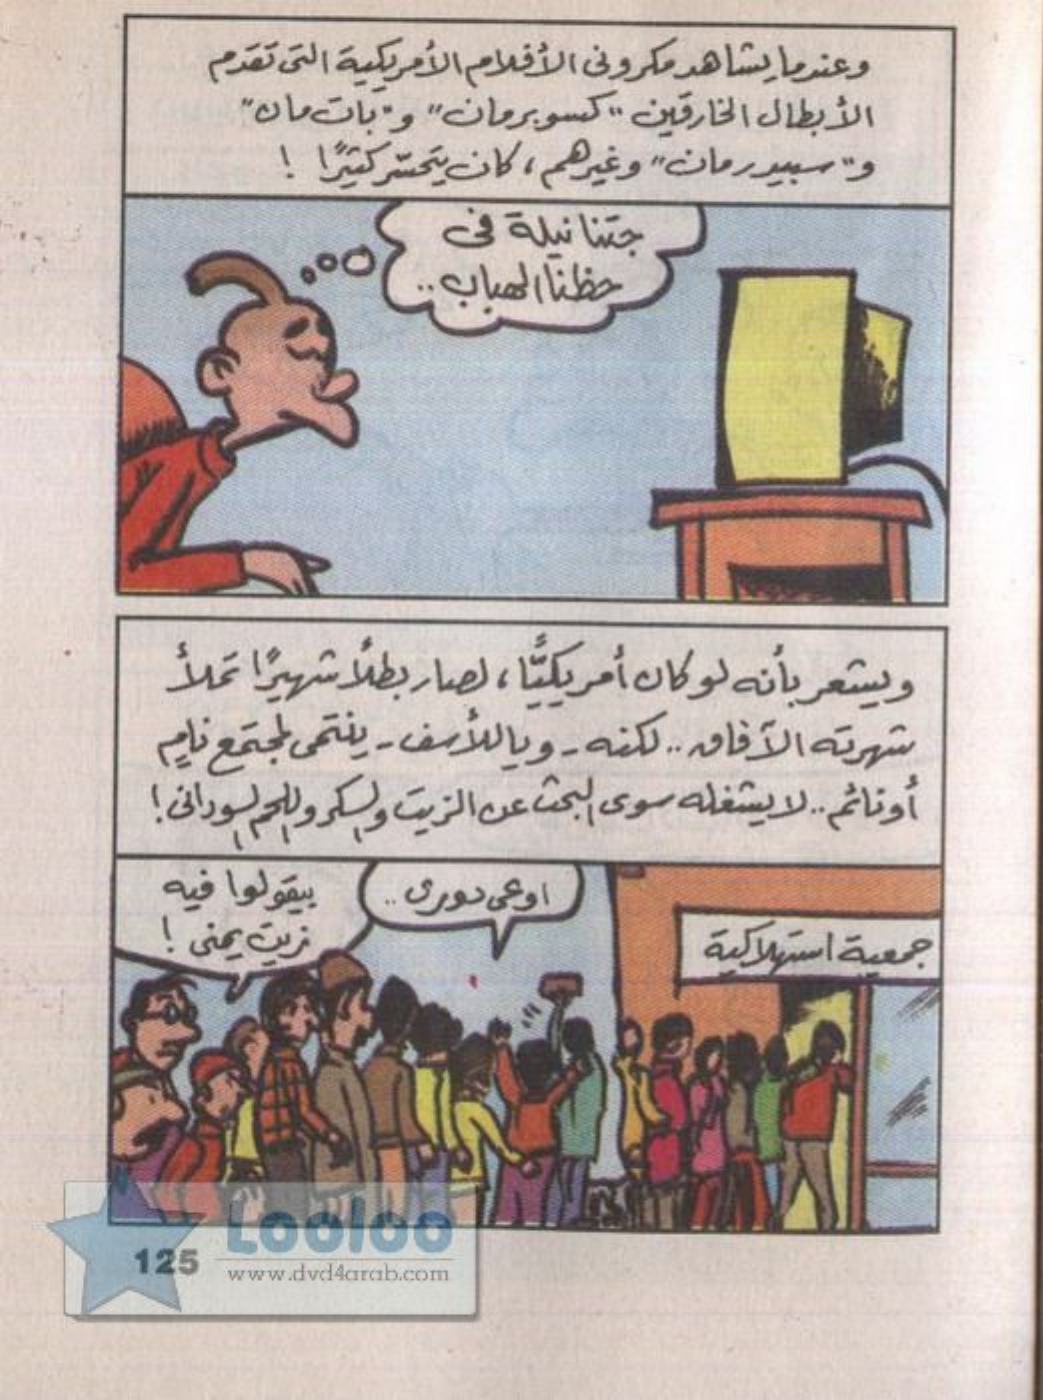 وعندما يشاهد مكرونى الأفلام الأمريكية التى تقدم
الأبطال الخارقين "كسوبرمان" و"بات مان"
و"سبيدرمان" وغيرهم، كان يتحسّر كثيرًا !
جتنا نيلة فى
حظنا الهباب..
ويشعر بأنه لو كان أمريكيًّا، لصار بطلًا شهيرًا تملأ
شهرته الآفاق.. لكنه - وياللأسف - ينتمى لمجتمع نايم
أو نائم.. لا يشغله سوى البحث عن الزيت والسكر واللحم السودانى!
اوعى دورى..
بيقولوا فيه
زيت يمنى !
جمعية استهلاكية
125
Looloo
www.dvd4arab.com